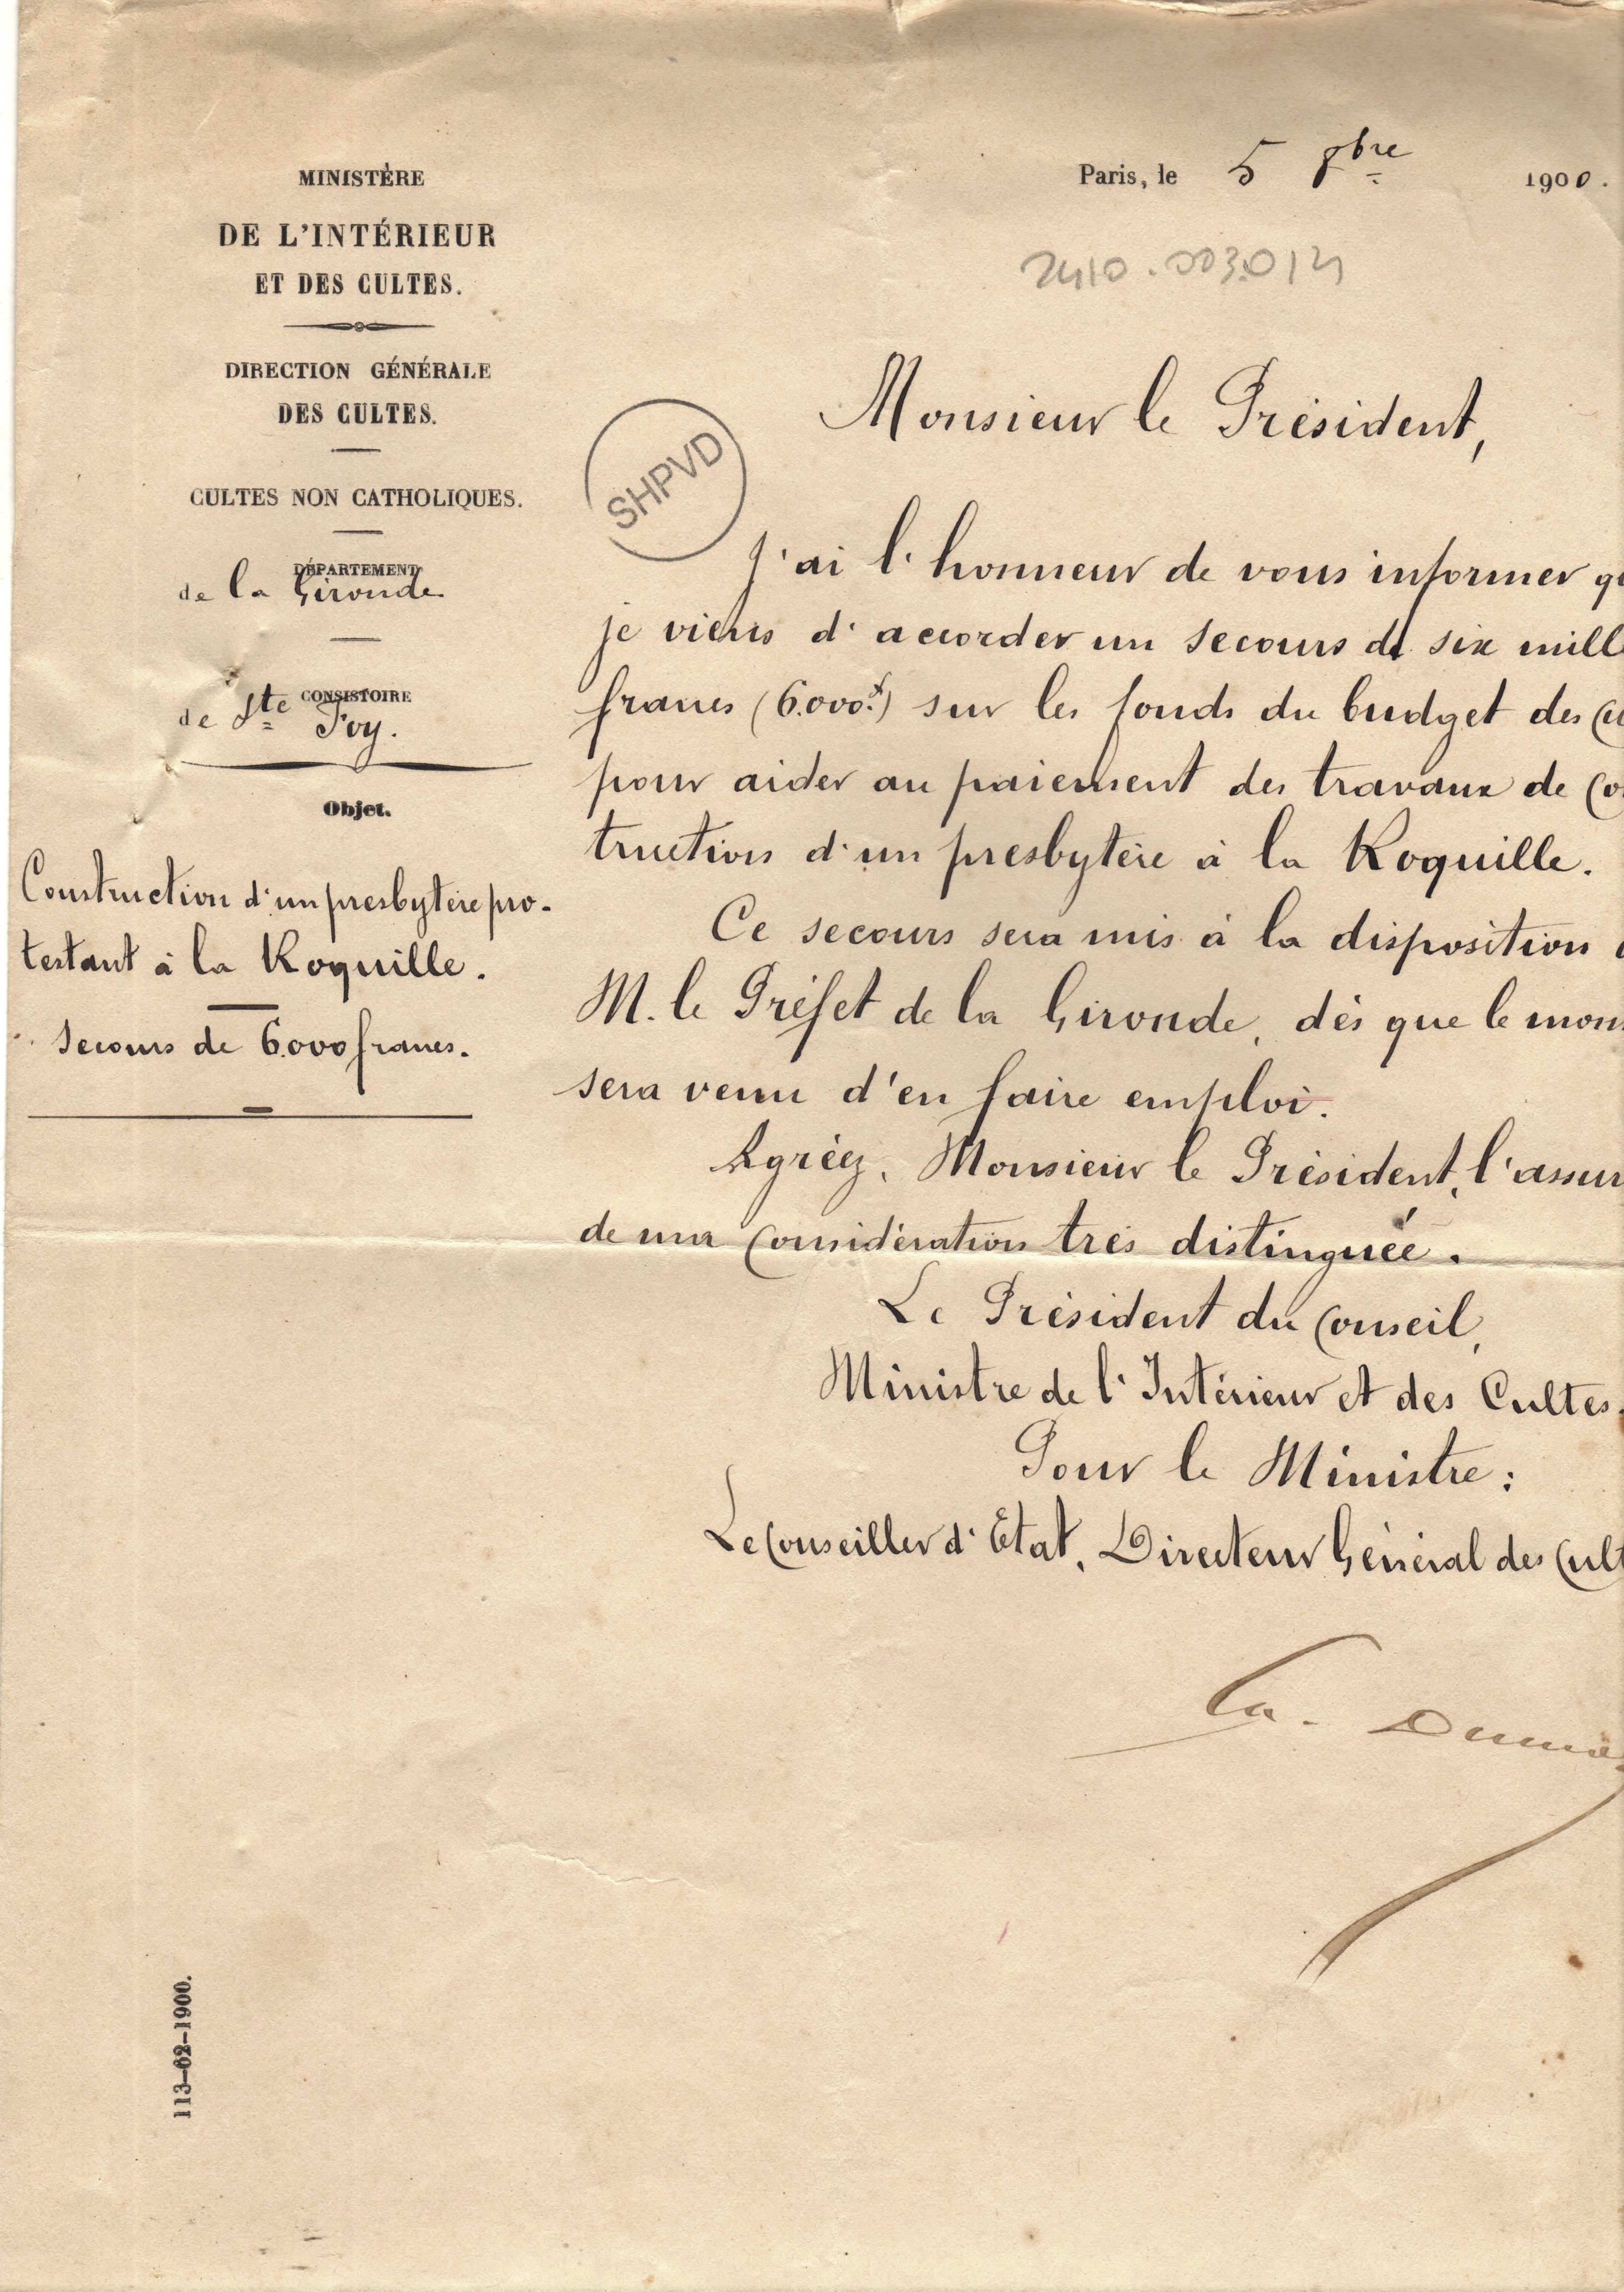 MINISTÈRE
DE L'INTÉRIEUR
ET DES CULTES.
DIRECTION GÉNÉRALE
DES CULTES.
CULTES NON CATHOLIQUES.
DÉPARTEMENT
de la Gironde
CONSISTOIRE
de Ste Foy.
Objet.
Construction d'un presbytère pro-
testant à la Roquille.
Secours de 6.000 francs.
113-62-1900.
Paris, le 5 8bre 1900.
2410.003.014
SHPVD
Monsieur le Président,
J'ai l'honneur de vous informer
je viens d'accorder un secours de six mill
francs (6.000f) sur les fonds du budget des
pour aider au paiement des travaux de
truction d'un presbytère à la Roquille.
Ce secours sera mis à la disposition
M. le Préfet de la Gironde, dès que le mom
sera venu d'en faire emploi.
Agréez, Monsieur le Président, l'assur
de ma considération très distinguée.
Le Président du Conseil,
Ministre de l'Intérieur et des Cultes,
Pour le Ministre:
Le Conseiller d'Etat, Directeur Général des Cult